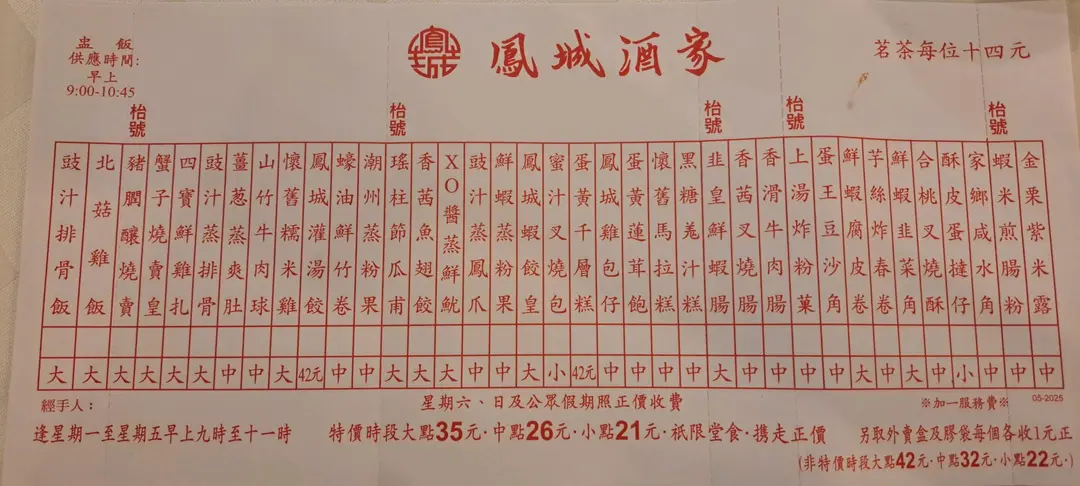 盅飯
供應時間:
早上
9:00-10:45
鳳城
鳳城酒家
茗茶每位十四元
枱號
枱號
枱號
枱號
枱號
豉汁排骨飯
北菇雞飯
豬膶釀燒賣
蟹子燒賣皇
四寶鮮雞扎
豉汁蒸排骨
薑葱蒸爽肚
山竹牛肉球
懷舊糯米雞
鳳城灌湯餃
蠔油鮮竹卷
潮州蒸粉果
瑤柱節瓜甫
香茜魚翅餃
XO醬蒸鮮魷
豉汁蒸鳳爪
鮮蝦蒸粉果
鳳城蝦餃皇
蜜汁叉燒包
蛋黃千層糕
鳳城雞包仔
蛋黃蓮茸飽
懷舊馬拉糕
黑糖羗汁糕
韭皇鮮蝦腸
香茜叉燒腸
香滑牛肉腸
上湯炸粉菓
蛋王豆沙角
鮮蝦腐皮卷
芋絲炸春卷
鮮蝦韭菜角
合桃叉燒酥
酥皮蛋撻仔
家鄉咸水角
蝦米煎腸粉
金栗紫米露
大 大 大 大 大 大 中 中 大 42元 中 中 大 大 大 中 中 大 小 42元 中 中 中 中 大 中 中 中 中 大 中 大 中 小 中 中 中
經手人:
星期六、日及公眾假期照正價收費
※加一服務費※
05-2025
逢星期一至星期五早上九時至十一時
特價時段大點35元·中點26元·小點21元·祇限堂食·携走正價
另取外賣盒及膠袋每個各收1元正
(非特價時段大點42元·中點32元·小點22元·)